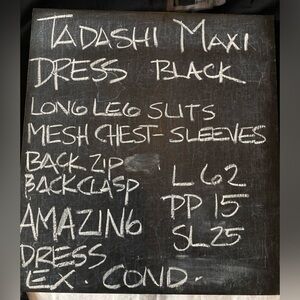 TADASHI MAXI
DRESS BLACK
LONG LEG SLITS
MESH CHEST SLEEVES
BACK ZIP
BACK CLASP
L 62
PP 15
SL 25
AMAZING
DRESS
EX. COND.